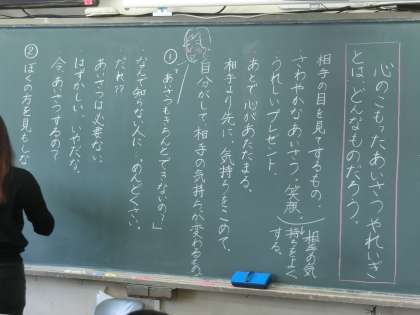 心のこもったあいさつやれいぎ
とは、どんなものだろう。
相手の目を見てするもの。
さわやかなあいさつ・笑顔。
相手の気
持ちをよく
する。
うれしいプレゼント。
あとで心があたたまる。
相手より先に、気持ちをこめて。
自分がして、相手の気持ちが変わるもの。
① あいさつもきちんとできないの?」
なんで知らない人に…めんどくさい。
だれ??
あいさつは必要ない
はずかしい、いやだな。
今、あいさつするの?
② ぼくの方を見もしな